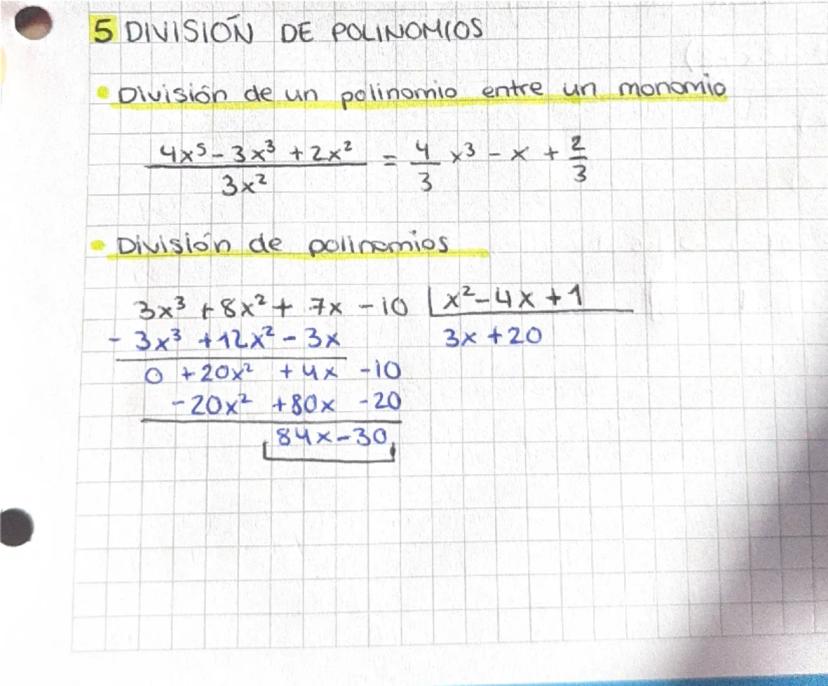 5 DIVISIÓN DE POLINOMIOS
• División de un polinomio entre un monomio
4x⁵ - 3x³ + 2x² / 3x² = 4/3 x³ - x + 2/3
• División de polinomios
3x³ + 8x² + 7x - 10 | x² - 4x + 1
- 3x³ + 12x² - 3x 3x + 20
0 + 20x² + 4x - 10
- 20x² + 80x - 20
84x - 30